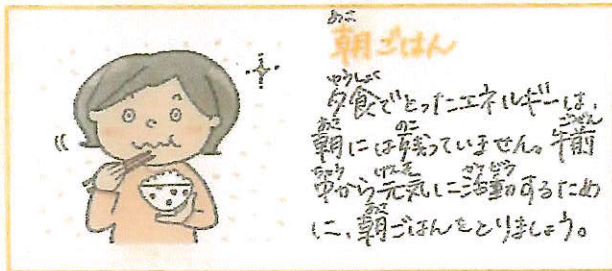 朝ごはん
夕食でとったエネルギーは、
朝には残っていません。午前
中から元気に活動するため
に、朝ごはんをとりましょう。